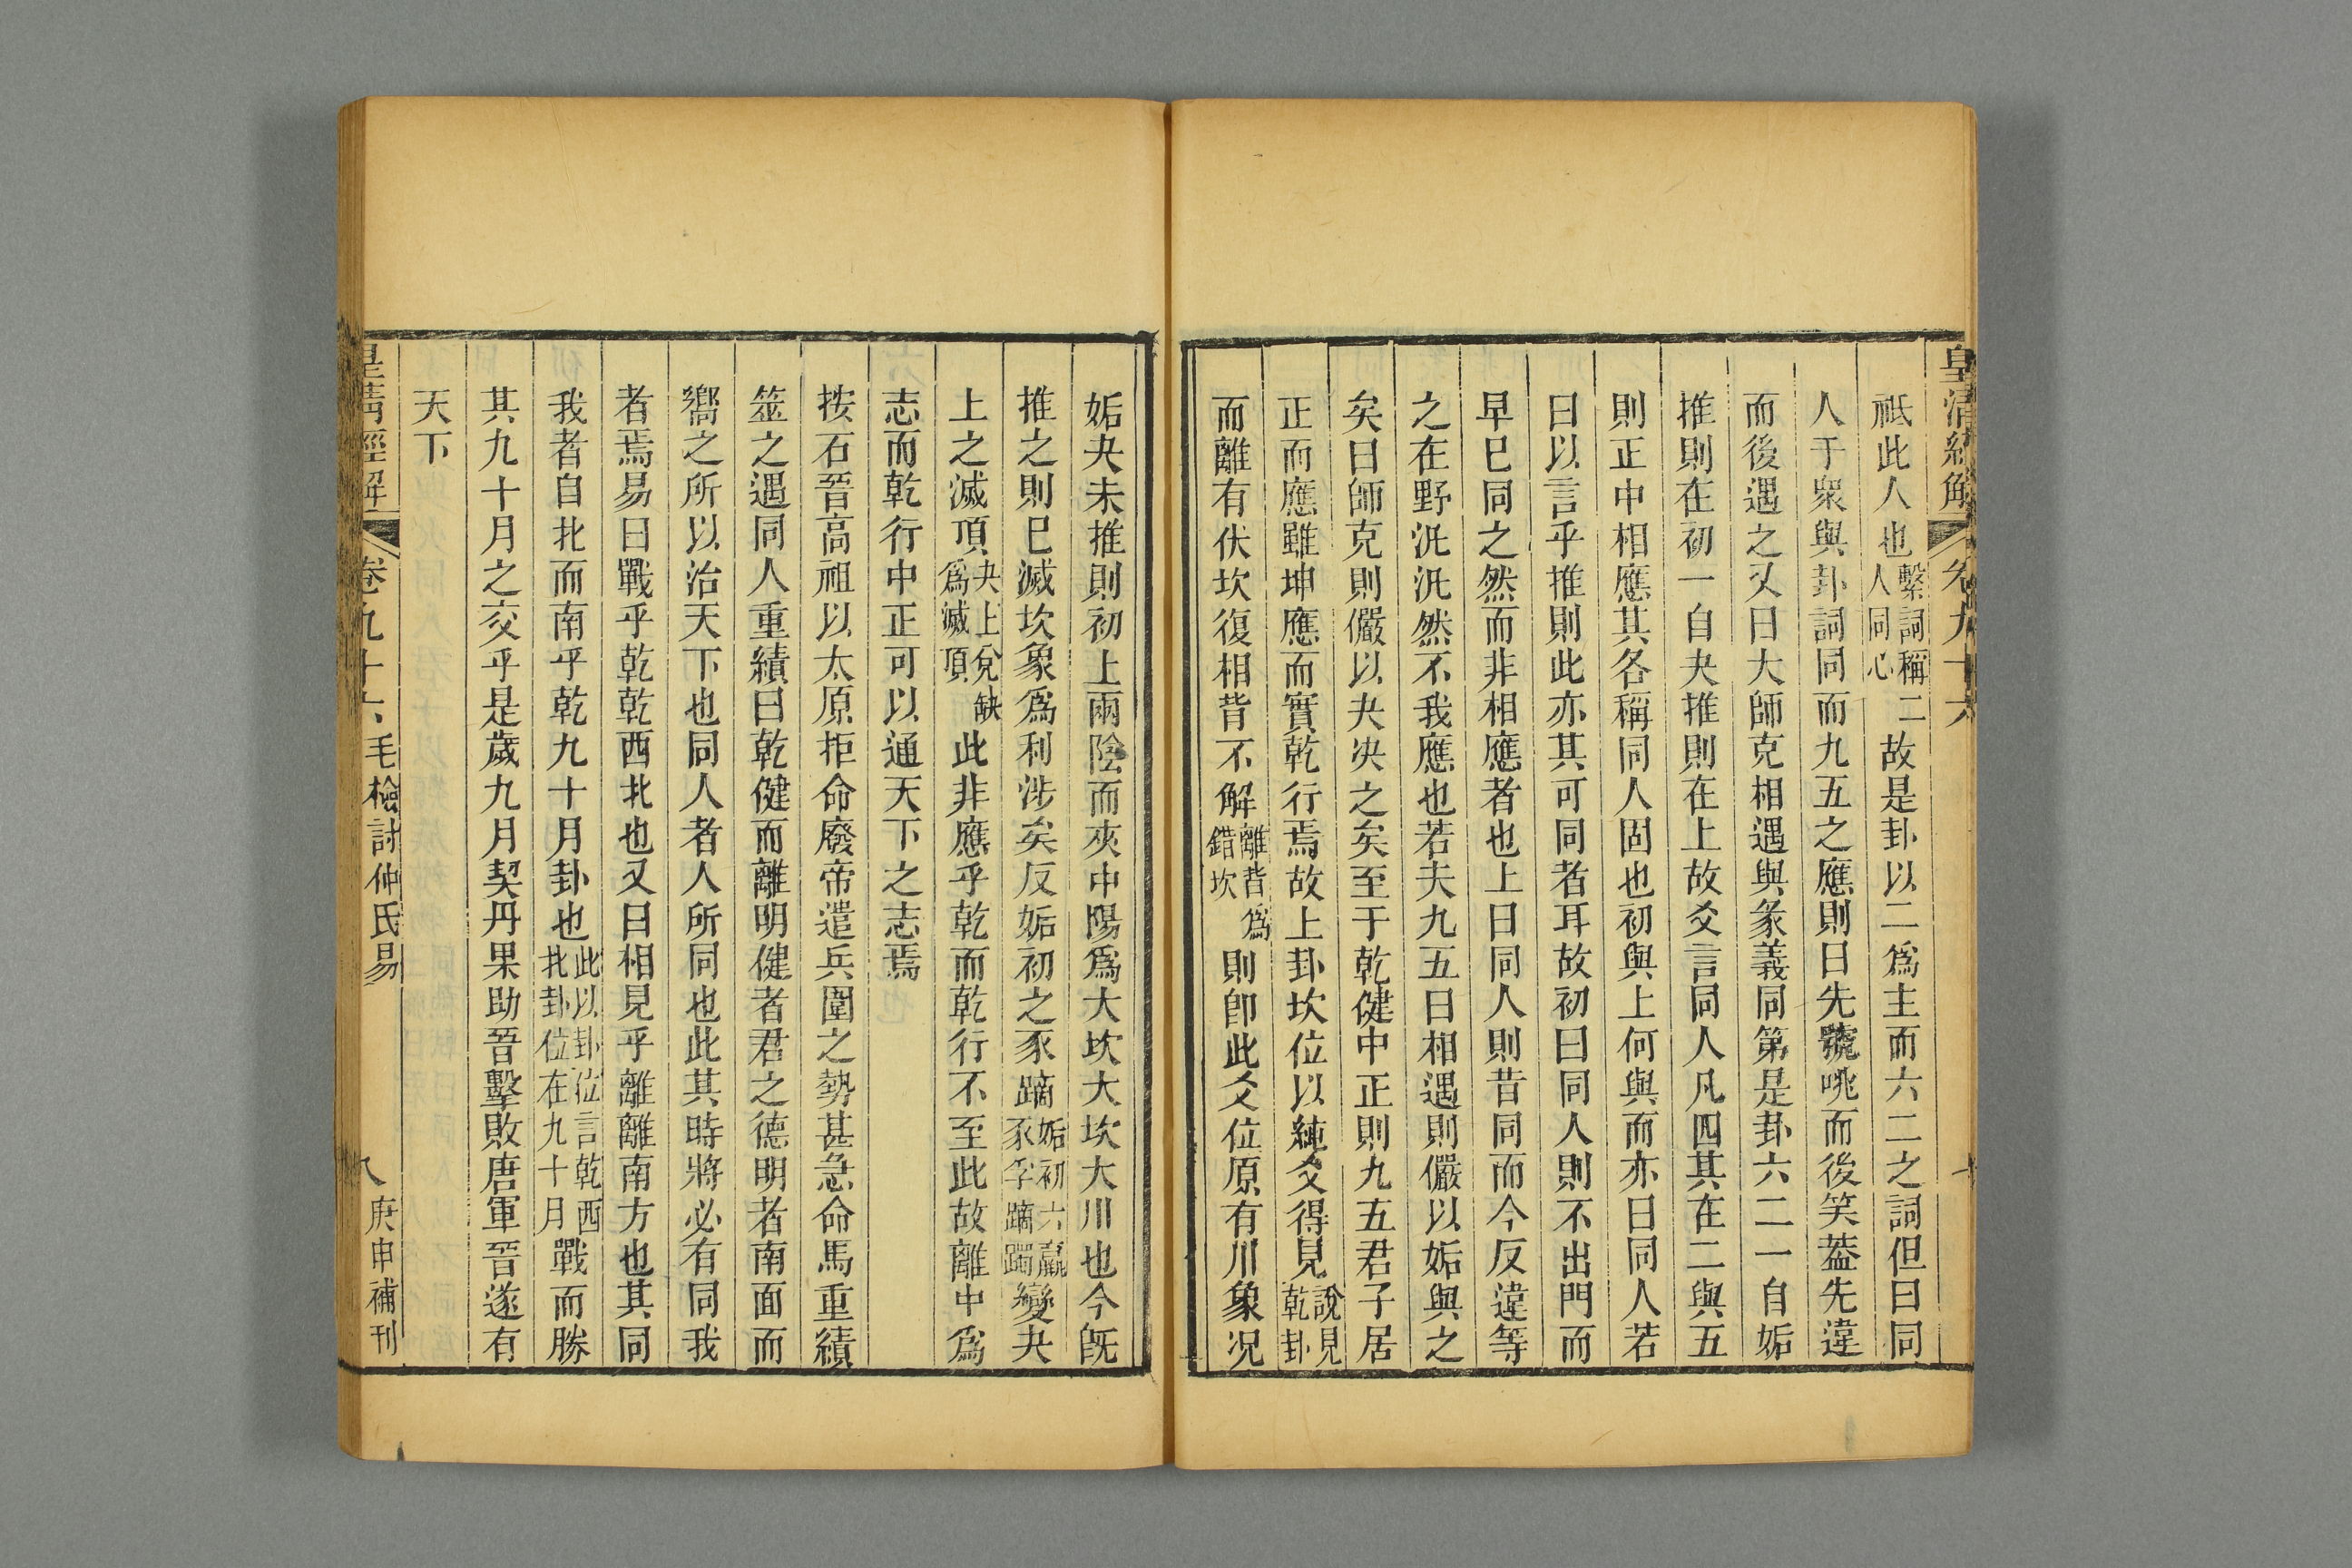 皇清經解 卷九十六
祇此人也繫詞稱二人同心故是卦以二爲主而六二之詞但曰同
人于衆與卦詞同而九五之應則曰先號咷而後笑葢先違
而後遇之又曰大師克相遇與彖義同第是卦六二一自姤
推則在初一自夬推則在上故爻言同人凡四其在二與五
則正中相應其各稱同人固也初與上何與而亦曰同人若
曰以言乎推則此亦其可同者耳故初曰同人則不出門而
早已同之然而非相應者也上曰同人則昔同而今反違等
之在野汎汎然不我應也若夫九五曰相遇則儼以姤與之
矣曰師克則儼以夬決之矣至于乾健中正則九五君子居
正而應雖坤應而實乾行焉故上卦坎位以純爻得見說見乾卦
而離有伏坎復相背不解離背爲錯坎則卽此爻位原有川象況
姤夬未推則初上兩陰而夾中陽爲大坎大坎大川也今旣
推之則已滅坎象爲利涉矣反姤初之豕蹢姤初六羸豕孚蹢躅變夬
上之滅頂夬上兌缺爲滅頂此非應乎乾而乾行不至此故離中爲
志而乾行中正可以通天下之志焉
按石晉高祖以太原拒命廢帝遣兵圍之勢甚急命馬重績
筮之遇同人重績曰乾健而離明健者君之德明者南面而
嚮之所以治天下也同人者人所同也此其時將必有同我
者焉易曰戰乎乾乾西北也又曰相見乎離離南方也其同
我者自北而南乎乾九十月卦也此以卦位言乾西北卦位在九十月戰而勝
其九十月之交乎是歲九月契丹果助晉擊敗唐軍晉遂有
天下
皇清經解 卷九十六 毛檢討仲氏易 八 庚申補刊